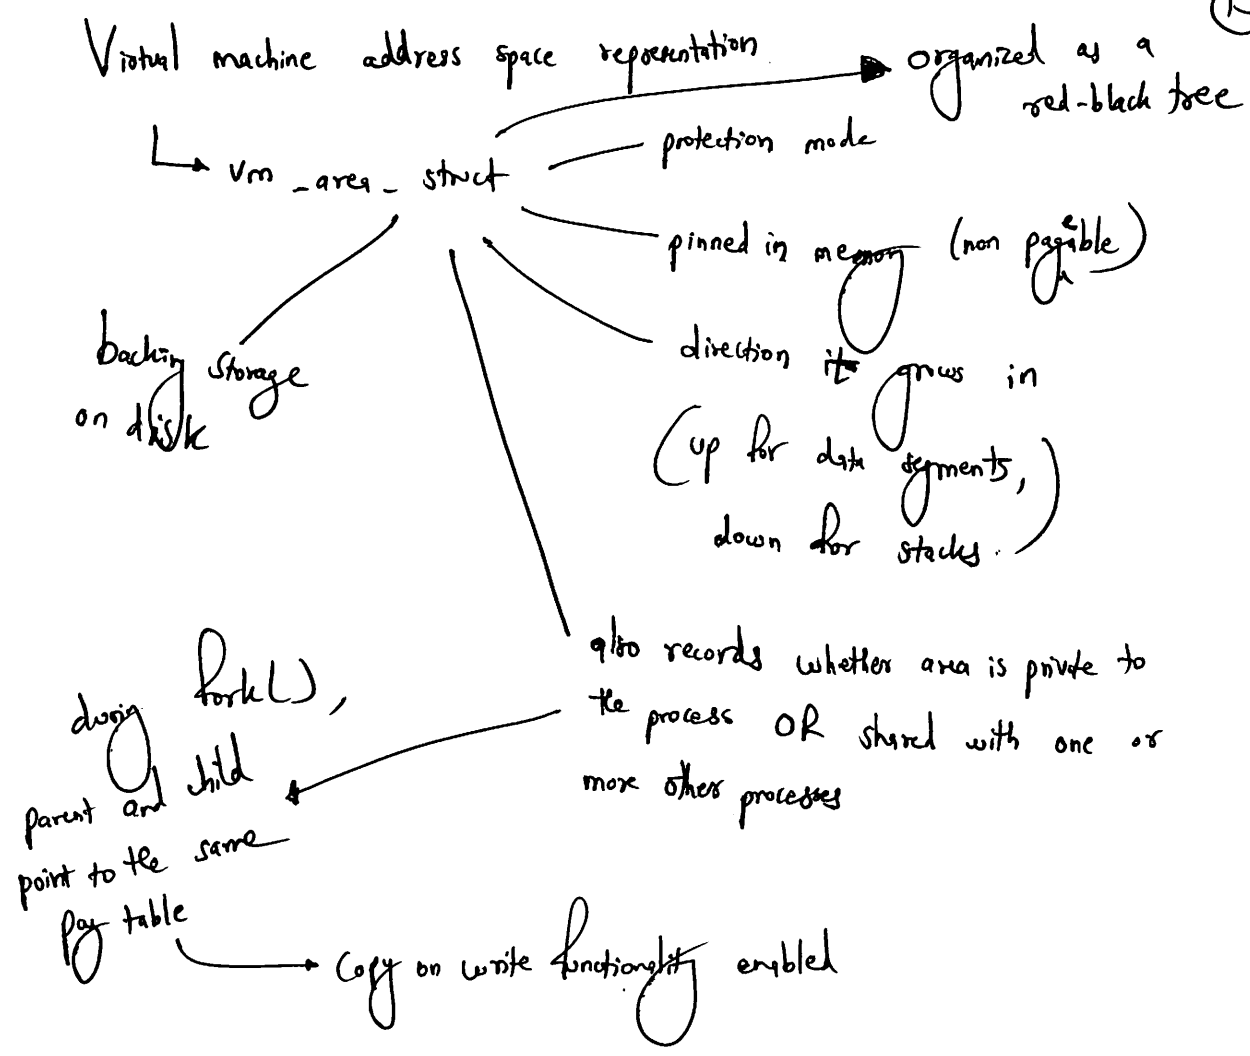 Virtual machine address space representation
organized as a
red-black tree
vm_area_struct
protection mode
pinned in memory (non pageable)
direction it grows in
(up for data segments,
down for stacks.)
backing storage
on disk
also records whether area is private to
the process OR shared with one or
more other processes
during fork(),
parent and child
point to the same
page table
copy on write functionality enabled